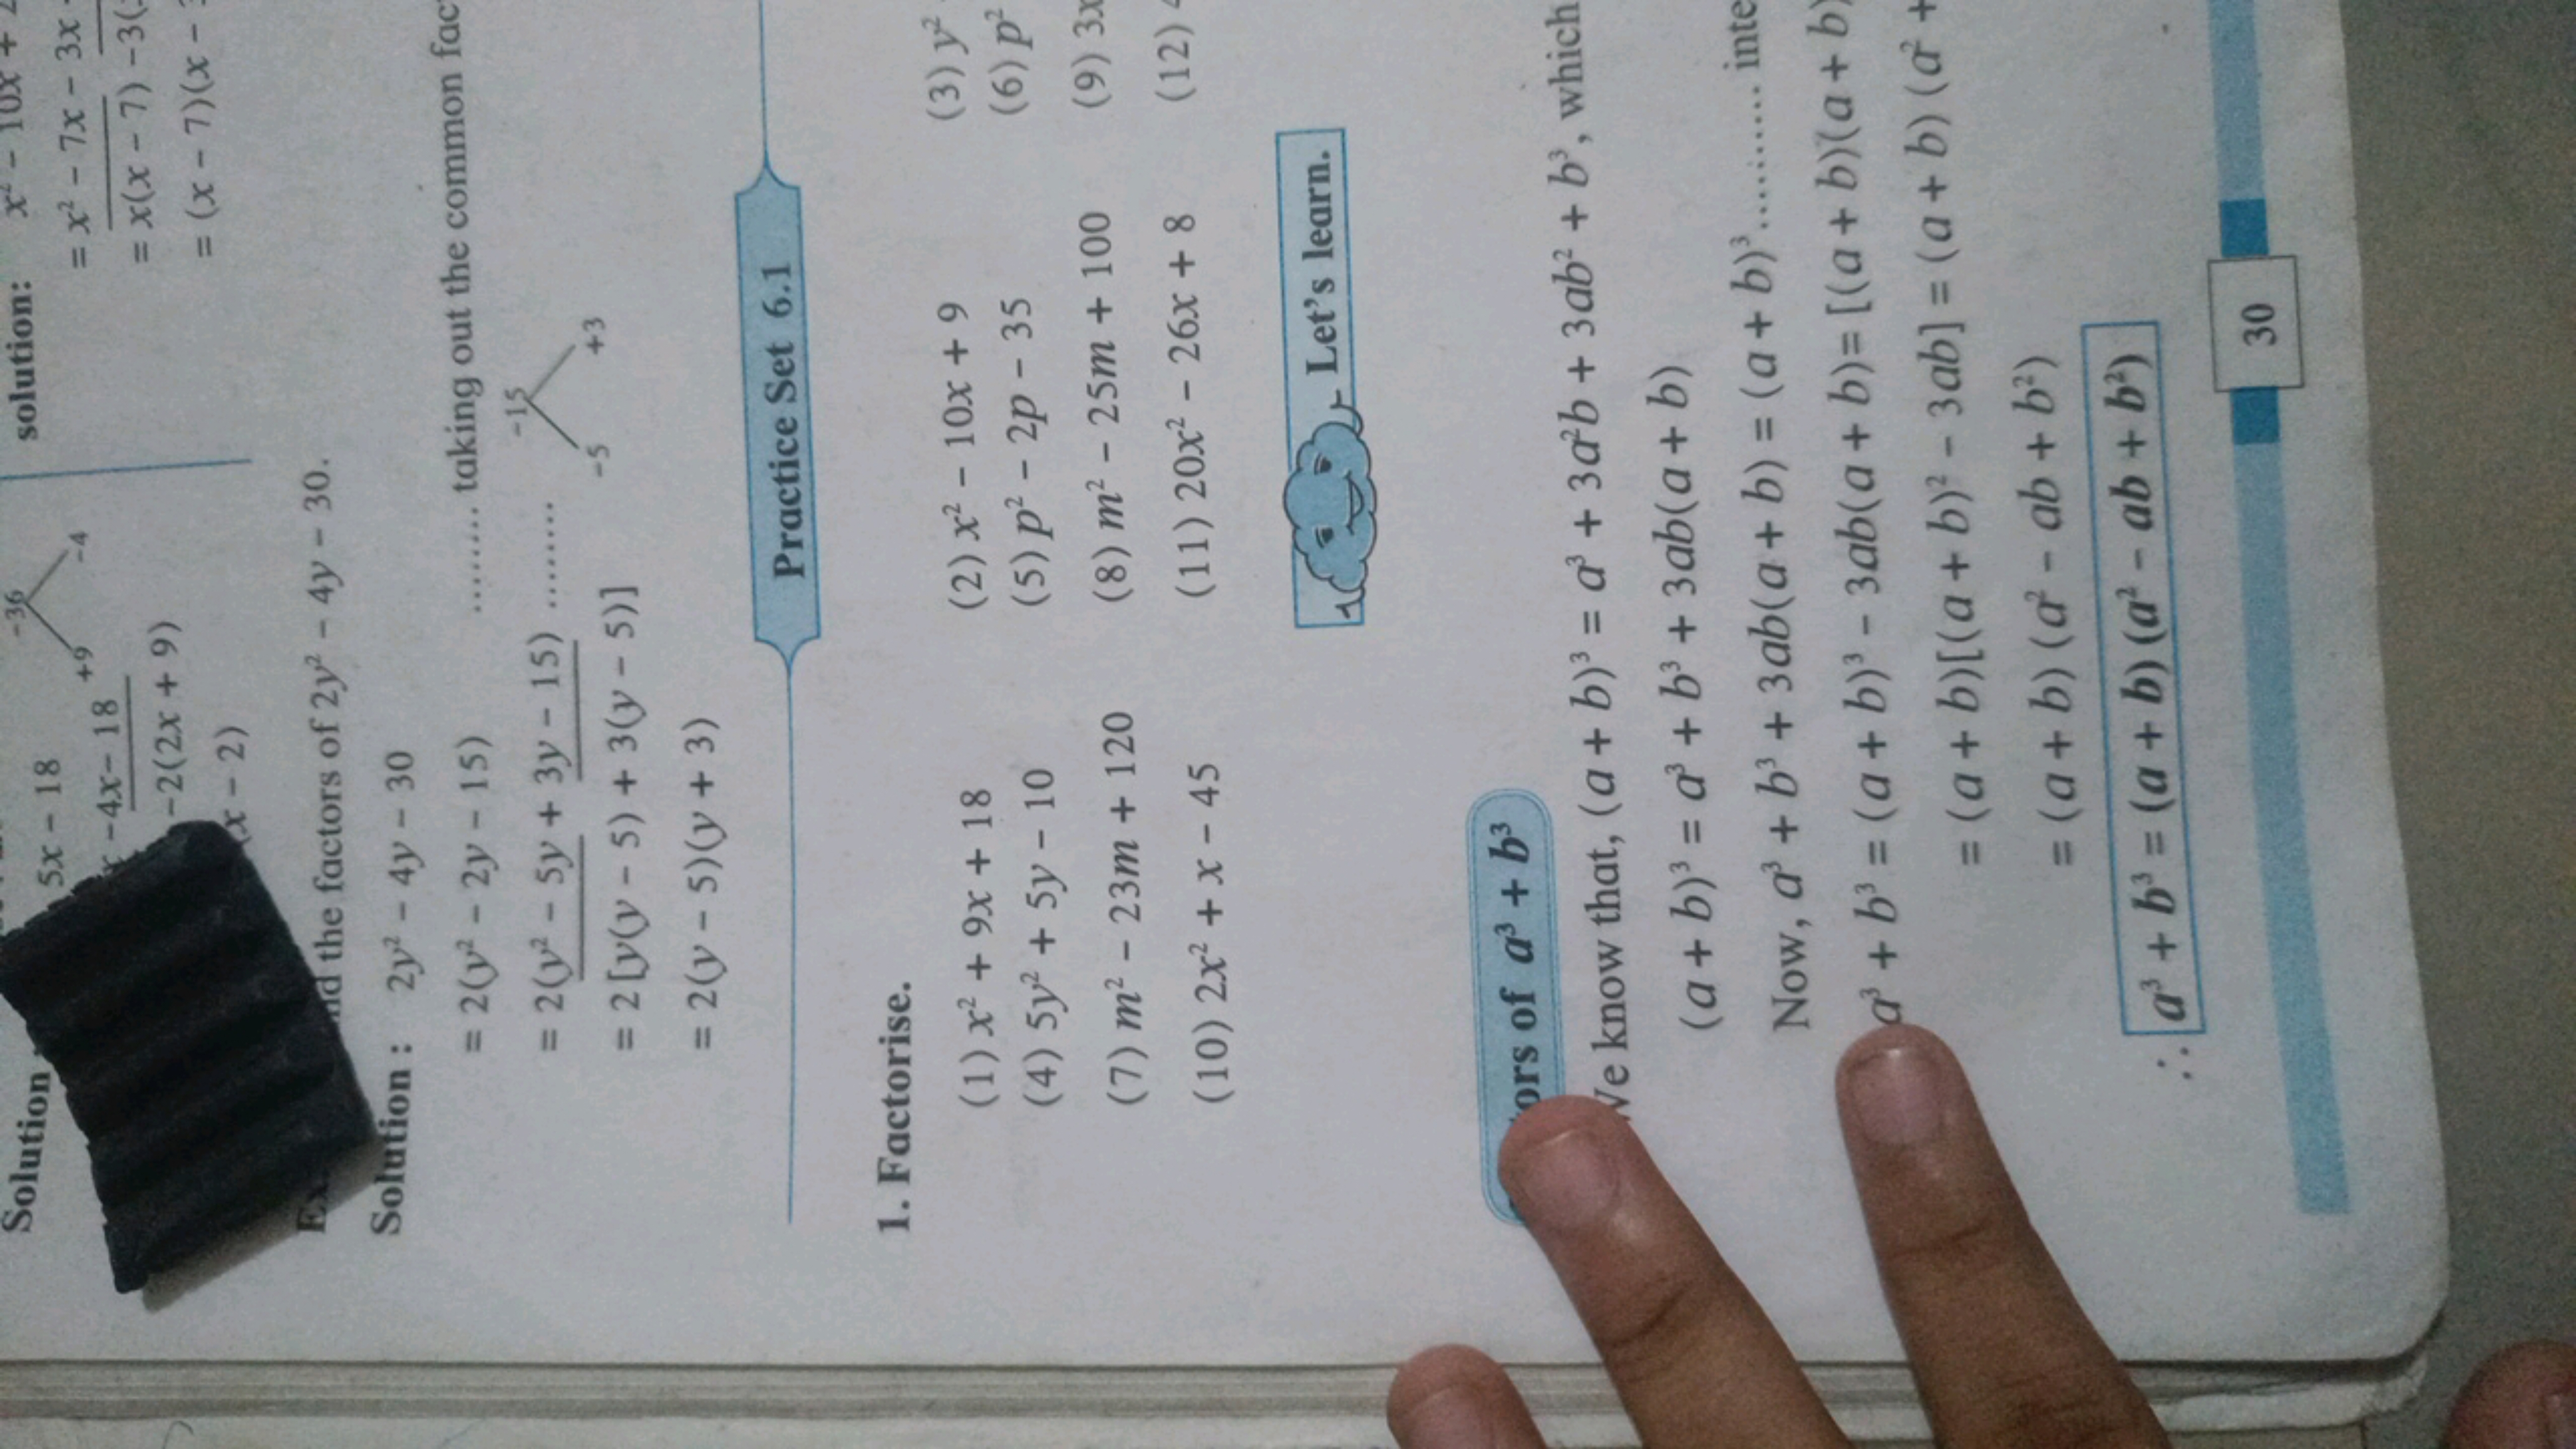 solution: x² – 10x + 2
= x² – 7x – 3x
= x(x – 7) –3(
= (x – 7)(x –
Solution
5x – 18
–36
+9 –4
–4x– 18
–2(2x + 9)
(x – 2)
the factors of 2y² – 4y – 30.
Solution : 2y² – 4y – 30
= 2(y² – 2y – 15) ......... taking out the common
= 2(y² – 5y + 3y – 15) ........
–15
–5 +3
= 2 [y(y – 5) + 3(y – 5)]
= 2(y – 5)(y + 3)
Practice Set 6.1
1. Factorise.
(1) x² + 9x + 18 (2) x² – 10x + 9 (3) y²
(4) 5y² + 5y – 10 (5) p² – 2p – 35 (6) p²
(7) m² – 23m + 120 (8) m² – 25m + 100 (9) 3x
(10) 2x² + x – 45 (11) 20x² – 26x + 8 (12)
Let's learn.
of a³ + b³
know that, (a + b)³ = a³ + 3a²b + 3ab² + b³, which
(a + b)³ = a³ + b³ + 3ab(a + b)
Now, a³ + b³ + 3ab(a + b) = (a + b)³...........
a³ + b³ = (a + b)³ – 3ab(a + b)= [(a + b)(a + b)
= (a + b)[(a + b)² – 3ab] = (a + b) (a² +
= (a + b) (a² – ab + b²)
∴ a³ + b³ = (a + b) (a² – ab + b²)
30